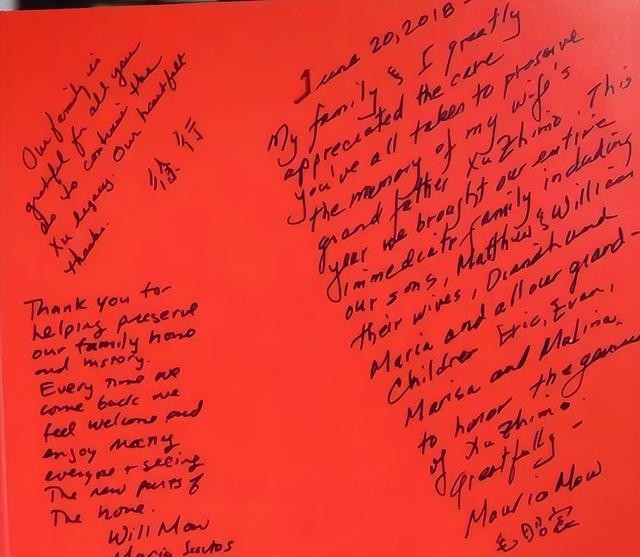 Our family is
grateful for all you
do to continue the
Xu legacy. Our heartfelt
thanks.
徐 行
Thank you for
helping preserve
our family home
and history.
Every time we
come back we
feel welcome and
enjoy meeting
everyone + seeing
the new parts of
the home.
Will Mow
Maria Santos
June 20, 2018 -
My family & I greatly
appreciated the care
you've all taken to preserve
the memory of my wife's
grand father Xu Zhimo. This
year we brought our entire
immediate family including
our sons, Matthew & William
their wives, and
Maria and all our grand-
children Eric, Evan,
Marisa and Malina.
to honor the genius
of Xu Zhimo.
Gratefully -
Mow